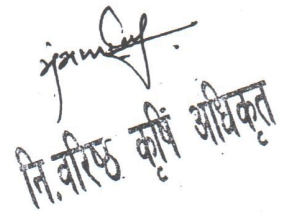 नि. वरिष्ठ कृषि अधिकृत